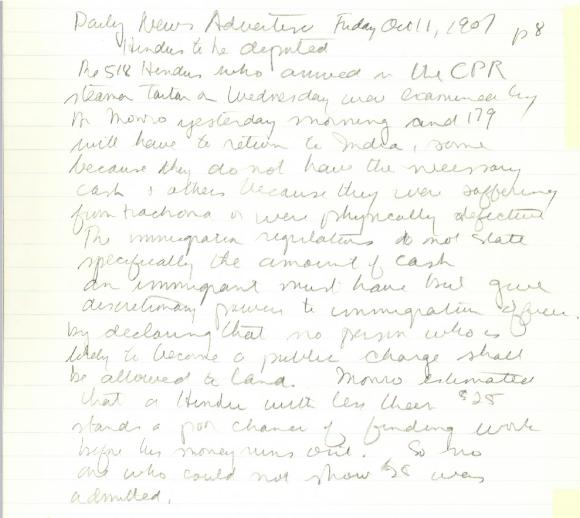 Daily News Advertiser Friday Oct 11, 1907 p8
Hindus to be deported
The 518 Hindus who arrived on the CPR
steamer Tartar on Wednesday were examined by
Dr Monro yesterday morning and 179
will have to return to India, some
because they do not have the necessary
cash & others because they were suffering
from trachoma or were physically defective
The immigration regulations do not state
specifically the amount of cash
an immigrant must have but give
discretionary powers to immigration officers
by declaring that no person who is
likely to become a public charge shall
be allowed to land. Monro estimated
that a Hindu with less than $25
stands a poor chance of finding work
before his money runs out. So no
one who could not show $25 was
admitted.